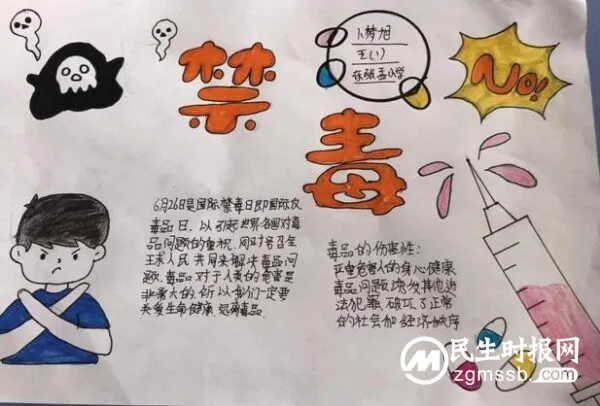 禁
毒
卜梦旭
(1)
东张孟小学
No!
6月26日是国际禁毒日即国际反
毒品日、以引起世界各国对毒
品问题的重视,同时号召全
球人民共同来解决毒品问
题,毒品对于人类的危害是
非常大的,所以我们一定要
关爱生命健康,远离毒品
毒品的伤害性:
严重危害人的身心健康
毒品问题诱发其他违
法犯罪,破坏了正常
的社会和经济秩序
民生时报网
zgmssb.com